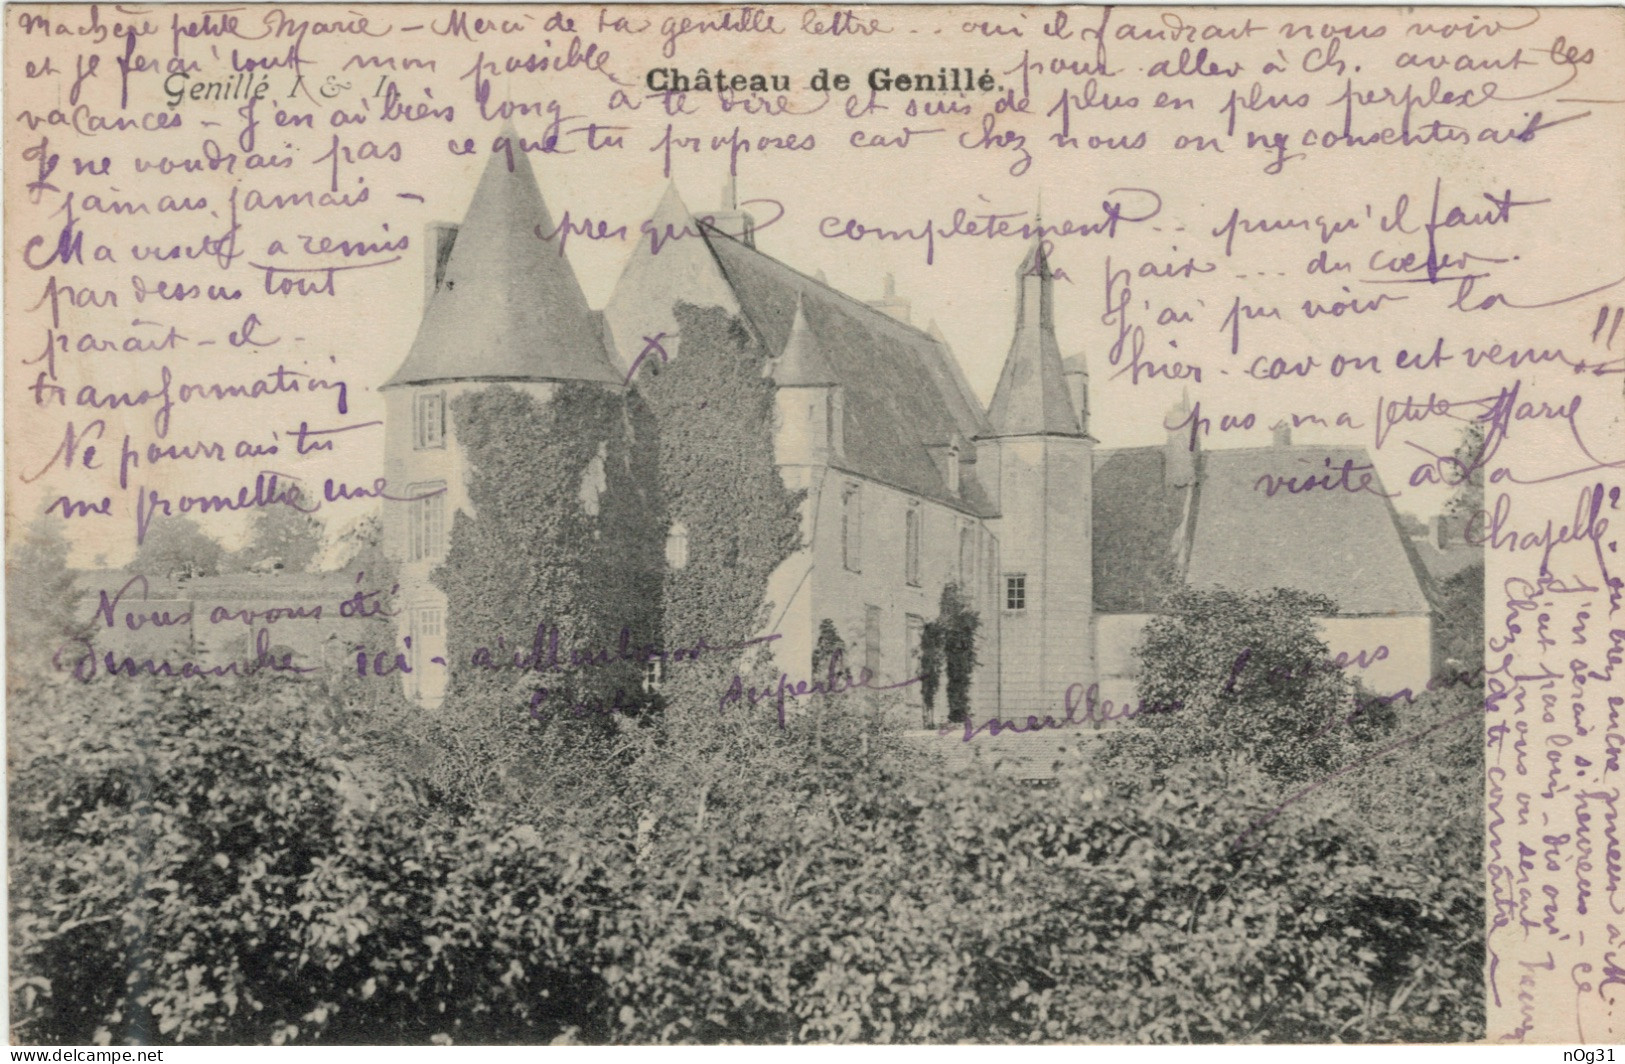 Ma chère petite Marie - Merci de ta gentille lettre .. oui il faudrait nous voir
et je ferai tout mon possible pour aller à Ch. avant les
Genillé I & L. Château de Genillé.
vacances - J'en ai bien long à te dire et suis de plus en plus perplexe -
Je ne voudrais pas ce que tu proposes car chez nous on n'y consentirait
jamais, jamais -
Ma visite a remis presque complètement .. puisqu'il faut
par dessus tout la paix ... du cœur.
paraît-il - J'ai pu voir la
transformation hier - car on est venu !!
Ne pourrais tu pas ma petite Marie
me promettre une visite à La
Chapelle
Nous avons été
dimanche ici -
superbe
meilleurs
J'en serais si heureuse - Ce
n'est pas loin - dis oui
Chez nous on serait
de te connaître -